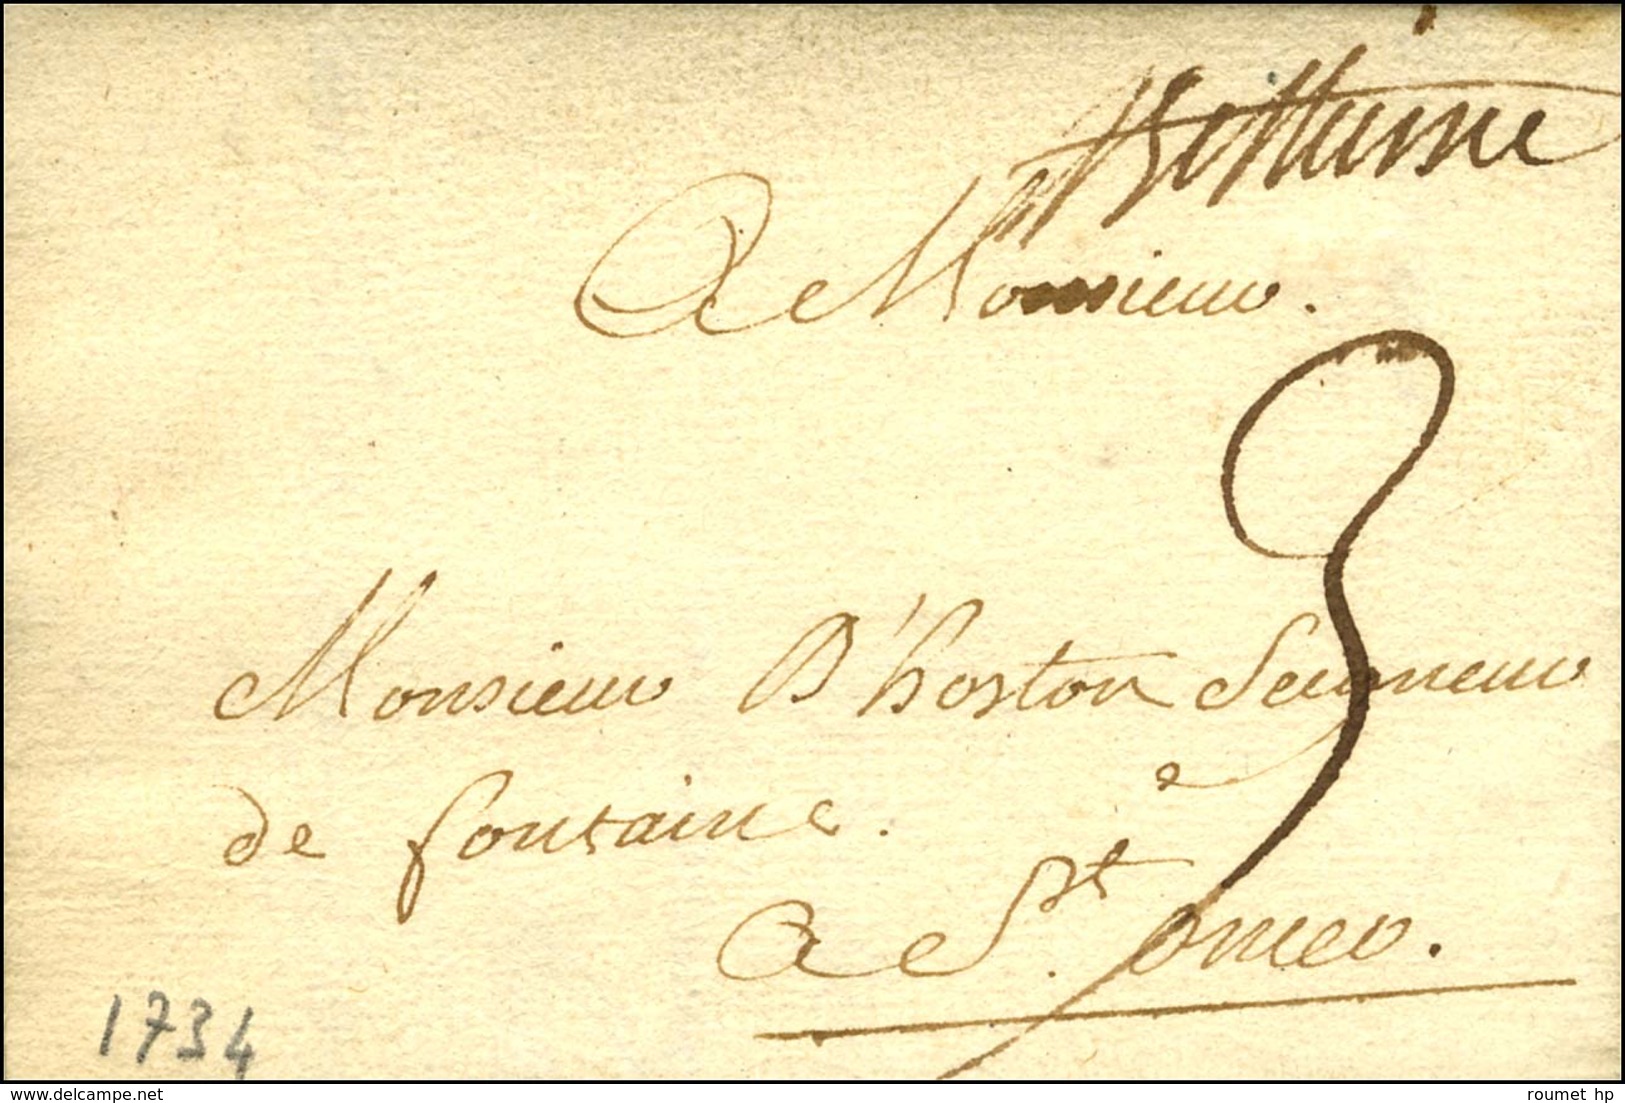 Béthune
A Monsieur.
3
Monsieur D'hoston Seigneur
de fontaine.
a
A St. omer.
1734
www.delcampe.net
roumet hp